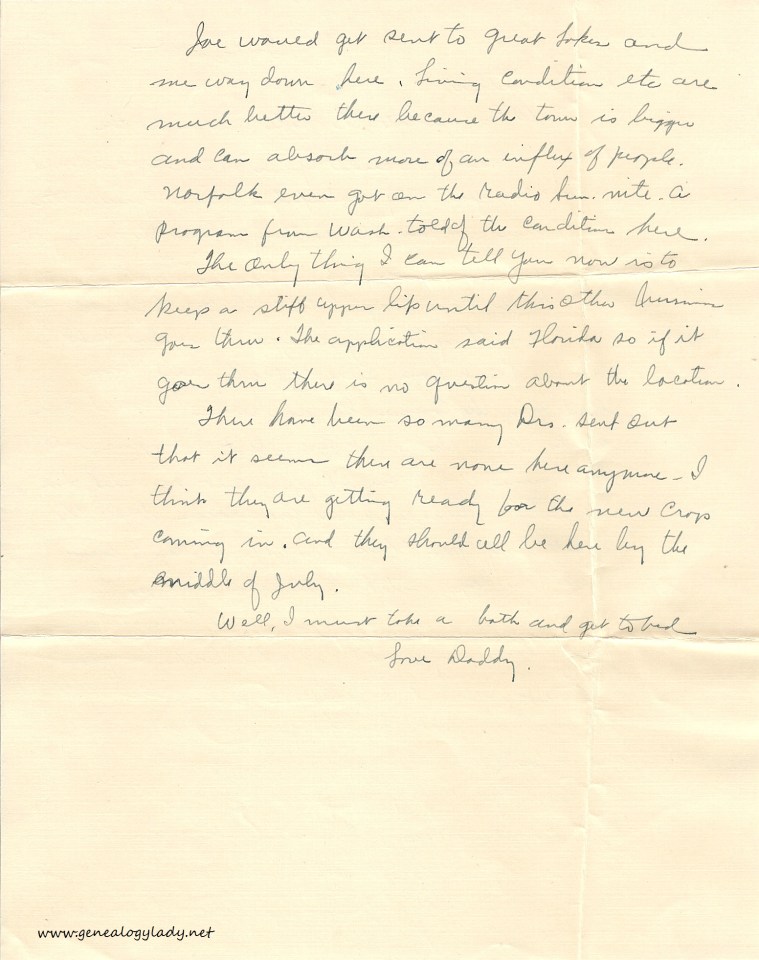 Joe would get sent to Great Lakes and
me way down here. Living condition etc are
much better there because the town is bigger
and can absorb more of an influx of people.
Norfolk even got on the radio Sun. nite. A
program from Wash. told of the condition here.
The only thing I can tell you now is to
keep a stiff upper lip until this other business
goes thru. The application said Florida so if it
goes thru there is no question about the location.
There have been so many Drs. sent out
that it seems there are none here anymore - I
think they are getting ready for the new crop
coming in. and they should all be here by the
middle of July.
Well, I must take a bath and get to bed
Love Daddy.
www.genealogylady.net